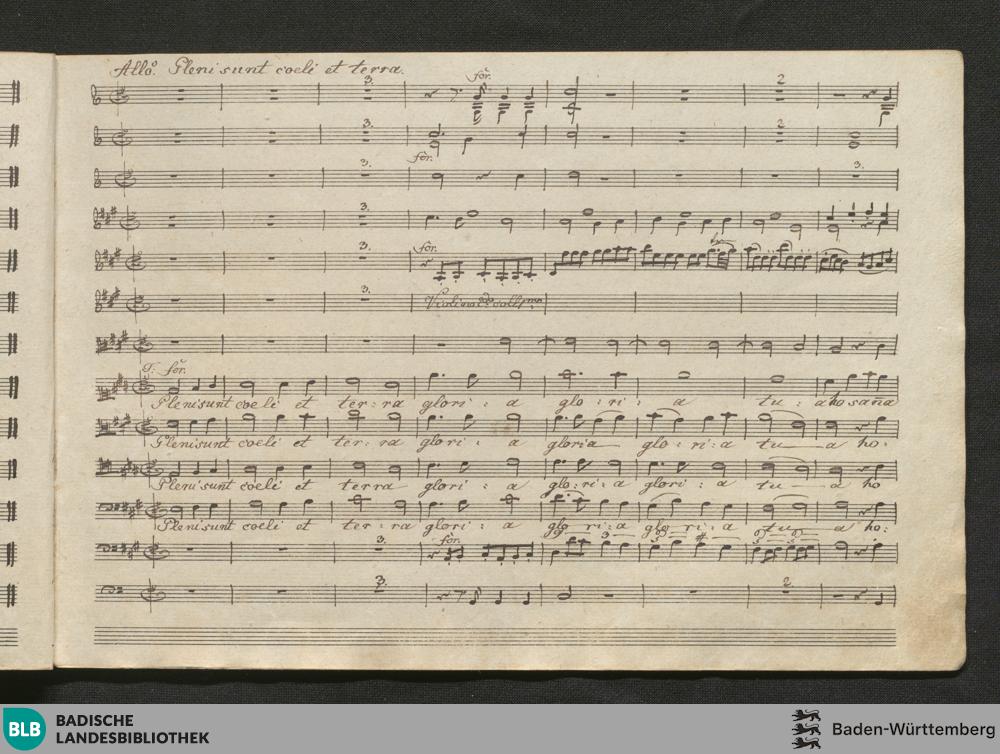 Allo. Pleni sunt coeli et terra.
3. for. 2
3. 2
for. 3. 3.
3.
3. for.
3. Violino 2do coll pmo
T: for.
Pleni sunt coeli et ter: ra glori: a glo: ri: a tu: a hosaña
Pleni sunt coeli et ter: ra glori: a gloria glo: ri: a tu a ho:
Pleni sunt coeli et terra glori: a glo: ri: a glori: a tu a ho
Pleni sunt coeli et ter: ra glori: a glo ri: a glo ri: a tu a ho:
3. for.
3. 2.
BLB BADISCHE
LANDESBIBLIOTHEK
Baden-Württemberg